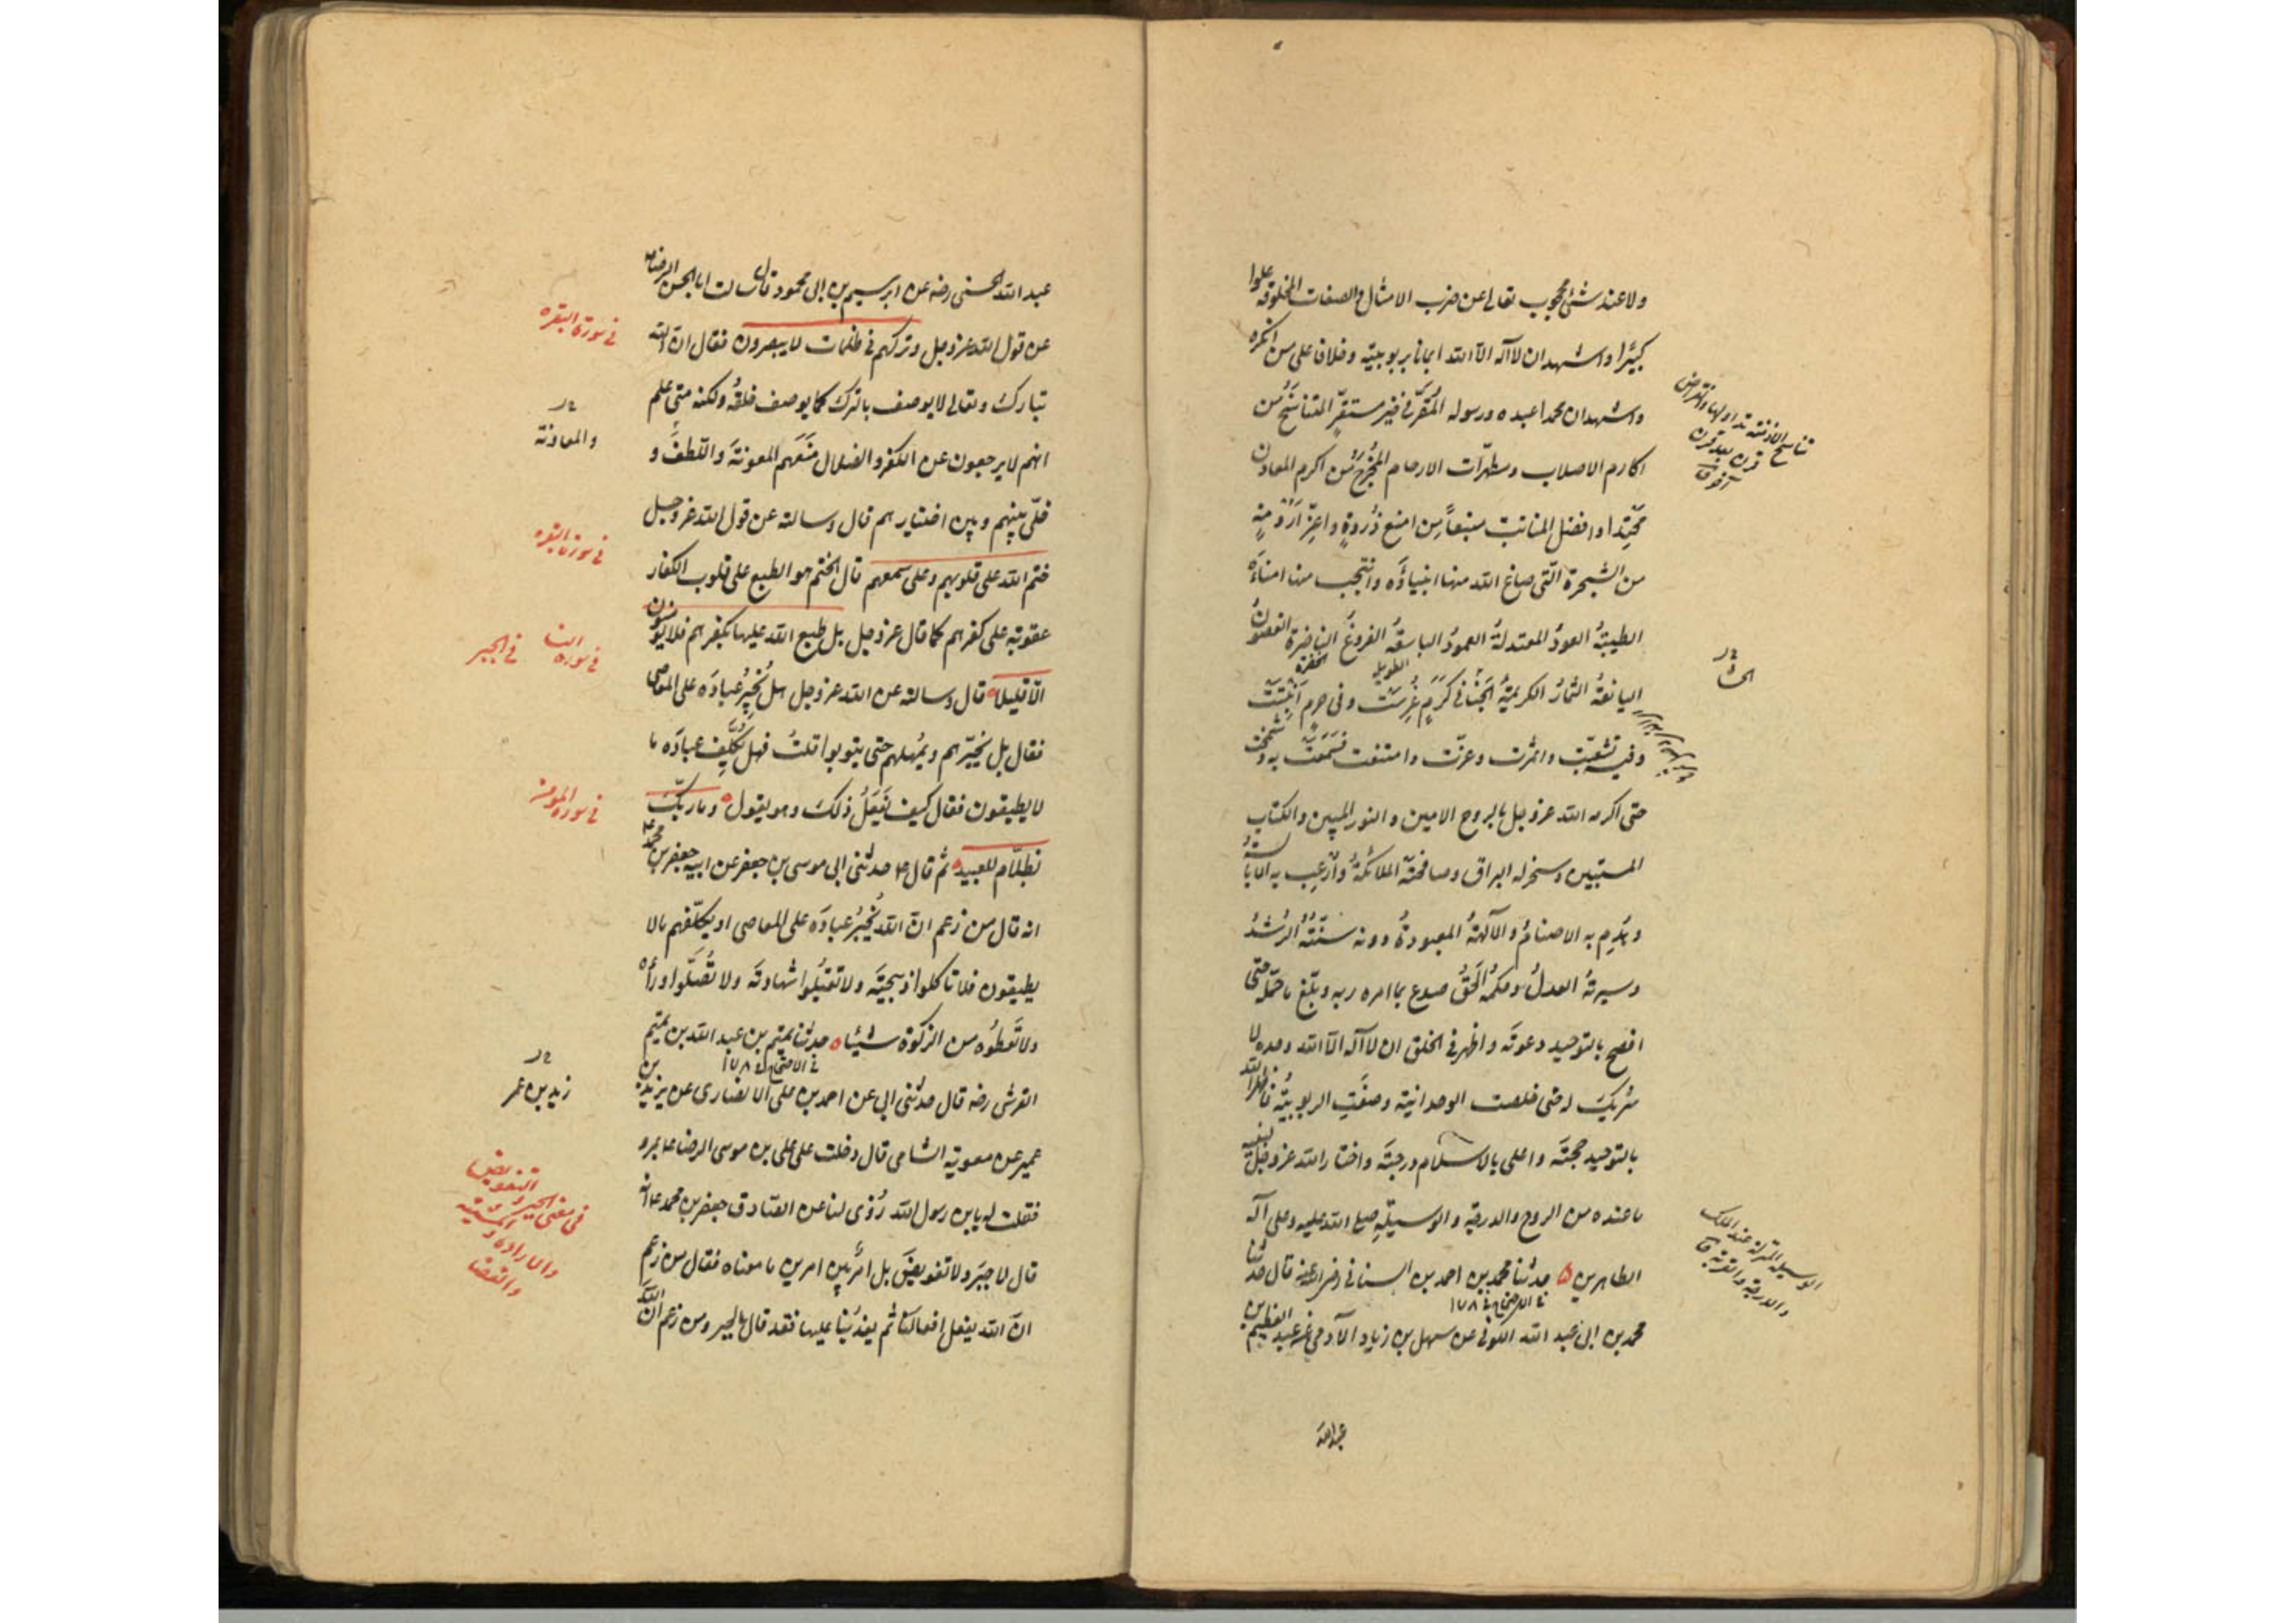 ولا عند شئ محجوب تعالى عن ضرب الامثال والصفات المخلوقة علوا
كبيرا واشهد ان لا آله الا الله ايمانا بربوبيته وخلافا على من انكره
واشهد ان محمدا عبده ورسوله المُقَرّ في خير مستقرّ المتناسخ من
اكارم الاصلاب ومطهّرات الارحام المُخْرَجُ من اكرم المعادن
مَحْتِدا وافضل المنابت منبتاً من امنع ذُروةٍ واعزّ اَرُومةٍ
من الشجرة الّتى صاغ الله منها انبياؤَه وانتجب منها امناءَه
الطيبةُ العودُ المعتدلةُ العمودُ الباسقةُ الفروعُ الناضرة الغصونُ
الطويل
الخضرة
اليانعةُ الثمارُ الكريمةُ الجَنا في كَرَمٍ غُرِسَت وفى حرم اُنْبِتَت
وفيه تشعّبت واثمرت وعزّت وامتنعت فسَمَتْ به وشمخت
حتى اكرمه الله عز وجل بالروح الامين والنور المبين والكتاب
المستبين وسخر له البراق وصافحته الملائكةُ وأرعب به الابالسةُ
وهَدم به الاصنامُ والآلهةُ المعبودةُ دونه سنّتُه الرُشدُ
وسيرتهُ العدلُ وحكمُه الحَقُّ صدع بما امره ربه وبلّغ ما حمّله حتى
افصح بالتوحيد دعوتَه واظهر في الخلق ان لا آله الا الله وحده لا
شريكَ له حتى خلصت الوحدانية وصفَتِ الربوبيّةُ فاظهر الله
بالتوحيد حجتَه واعلى بالاسلام درجتَه واختار الله عز وجل لنبيه
ما عنده من الروح والدرجة والوسيلةِ صلى الله عليه وعلى آله
الطاهرين ۵ حدثنا محمد بن احمد السنانى رضى الله عنه قال حدثنا
محمد بن ابى عبد الله الكوفى عن سهل بن زياد الآدمى عن عبد العظيم بن
عبد الله
تناسخ الازمنة تداولها وانقراض
قرن بعد قرن
آخر ق
الوسيلة المنزلة عند الملك
والدرجة والقربة ق
عبد الله الحسنى رضه عن ابرهيم بن ابى محمود قال سالت ابا الحسن الرضا
عن قول الله عز وجل وتركهم في ظلمات لا يبصرون فقال ان الله
تبارك وتعالى لا يوصف بالترك كما يوصف خلقُه ولكنه متى علم
انهم لا يرجعون عن الكفر والضلال مَنَعَهم المعونةَ واللطفَ و
خلّى بينهم وبين اختيارهم قال وسالته عن قول الله عز وجل
ختم الله على قلوبهم وعلى سمعهم قال الختم هو الطبع على قلوب الكفار
عقوبة على كفرهم كما قال عز وجل بل طبع الله عليها بكفرهم فلا يؤمنون
الّا قليلا قال وسالته عن الله عز وجل هل يُجْبِرُ عبادَه على المعاصى
فقال بل يخيّرهم ويُمهلهم حتى يتوبوا قلتُ فهل يُكَلِّف عبادَه ما
لا يطيقون فقال كيف يَفعَلُ ذلكَ وهو يقول وما ربّك
بظلّام للعبيد ثم قال ع حدثنى ابى موسى بن جعفر عن ابيه جعفر بن محمد ع
انه قال من زعم انّ الله يُجْبِرُ عبادَه على المعاصى او يكلّفهم ما لا
يطيقون فلا تاكلوا ذبيحتَه ولا تقبَلُوا شهادتَه ولا تُصلّوا وراءَه
ولا تُعطُوه من الزكوة شيئا ه حدثنا تميم بن عبد الله بن تميم
القرشى رضه قال حدثنى ابى عن احمد بن على الانصارى عن يزيد بن
عمير عن معوية الشامى قال دخلت على على بن موسى الرضا ع بمرو
فقلت له يابن رسول الله رُوِى لنا عن الصادق جعفر بن محمد ع انه
قال لا جبرَ ولا تفويضَ بل امرٌ بين امرين ما معناه فقال من زعم
انّ الله يفعل افعالنا ثم يعذبُنا عليها فقد قال بالجبر ومن زعم ان الله
في سورة البقره
والمعاونة
في سورة البقره
في سورة النسا
في الجبر
في سورة المومن
زيد بن عمر
في معنى الجبر والتفويض
والارادة والمشية
والقضا